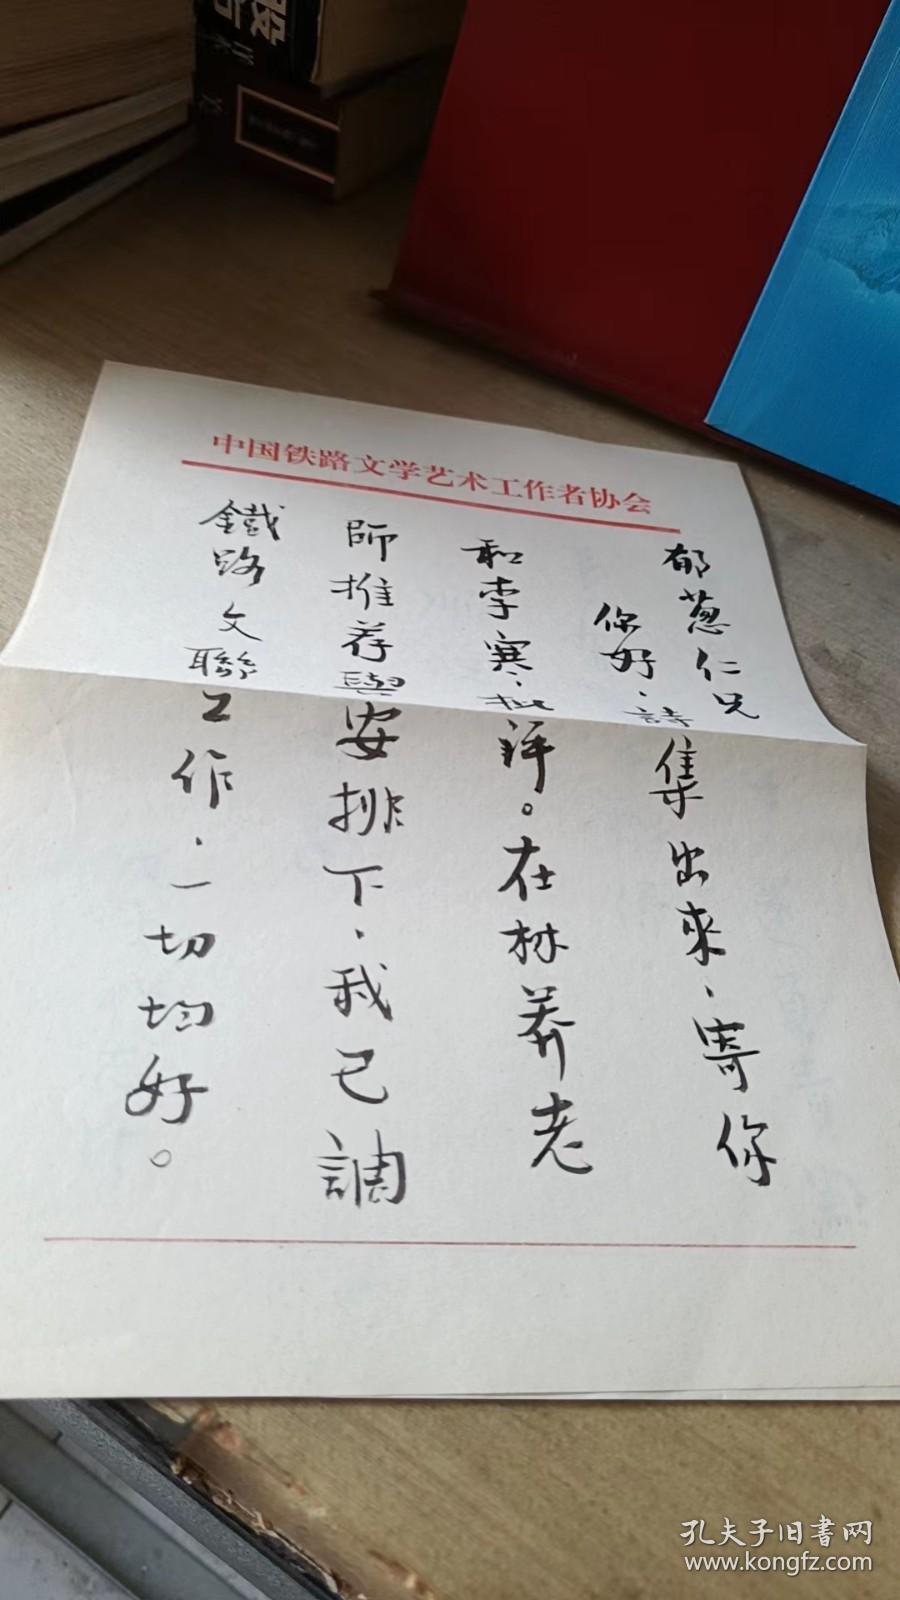 中国铁路文学艺术工作者协会
郁葱仁兄
你好、詩集出來、寄你
和李寒、批评。在林莽老
師推荐與安排下、我已調
鐵路文聯工作、一切均好。
孔夫子旧書网
www.kongfz.com